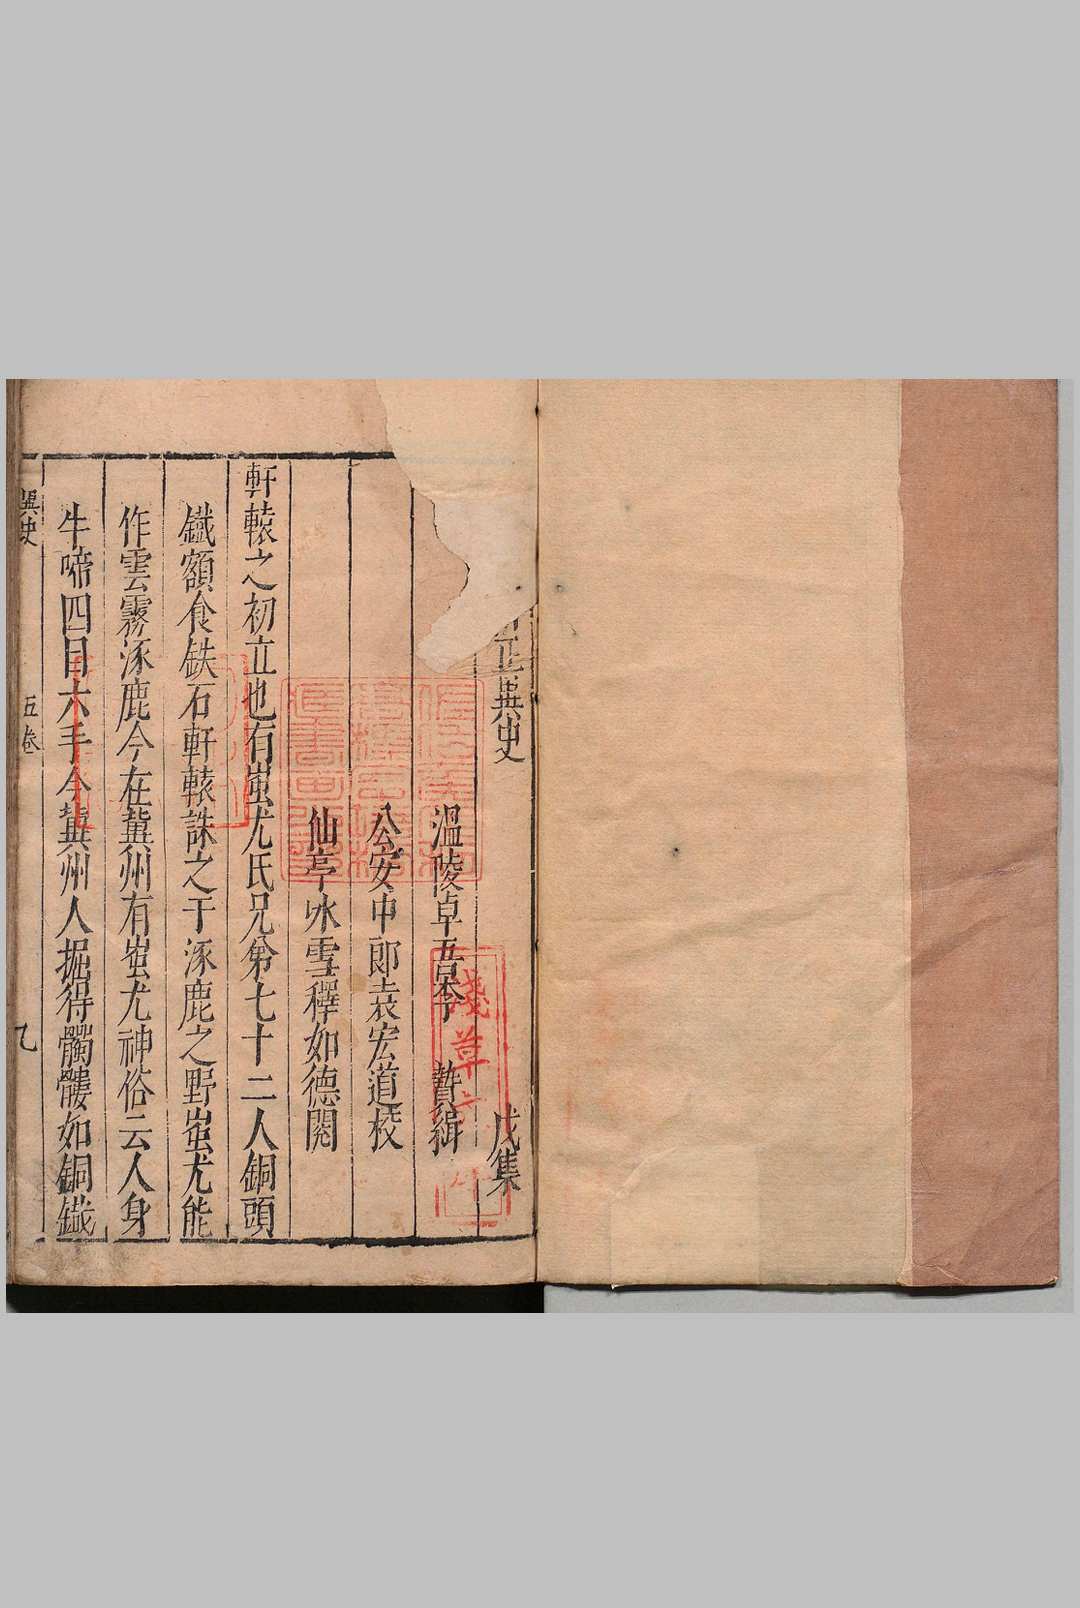 正異史
戊集
溫陵卓吾李贄緝
公安中郎袁宏道校
仙亭氷雪釋如德閱
軒轅之初立也有蚩尤氏兄第七十二人銅頭
鐵額食鉄石軒轅誅之于涿鹿之野蚩尤能
作雲霧涿鹿今在冀州有蚩尤神俗云人身
牛啼四目六手今冀州人掘得髑髏如銅鐵
異史
五卷